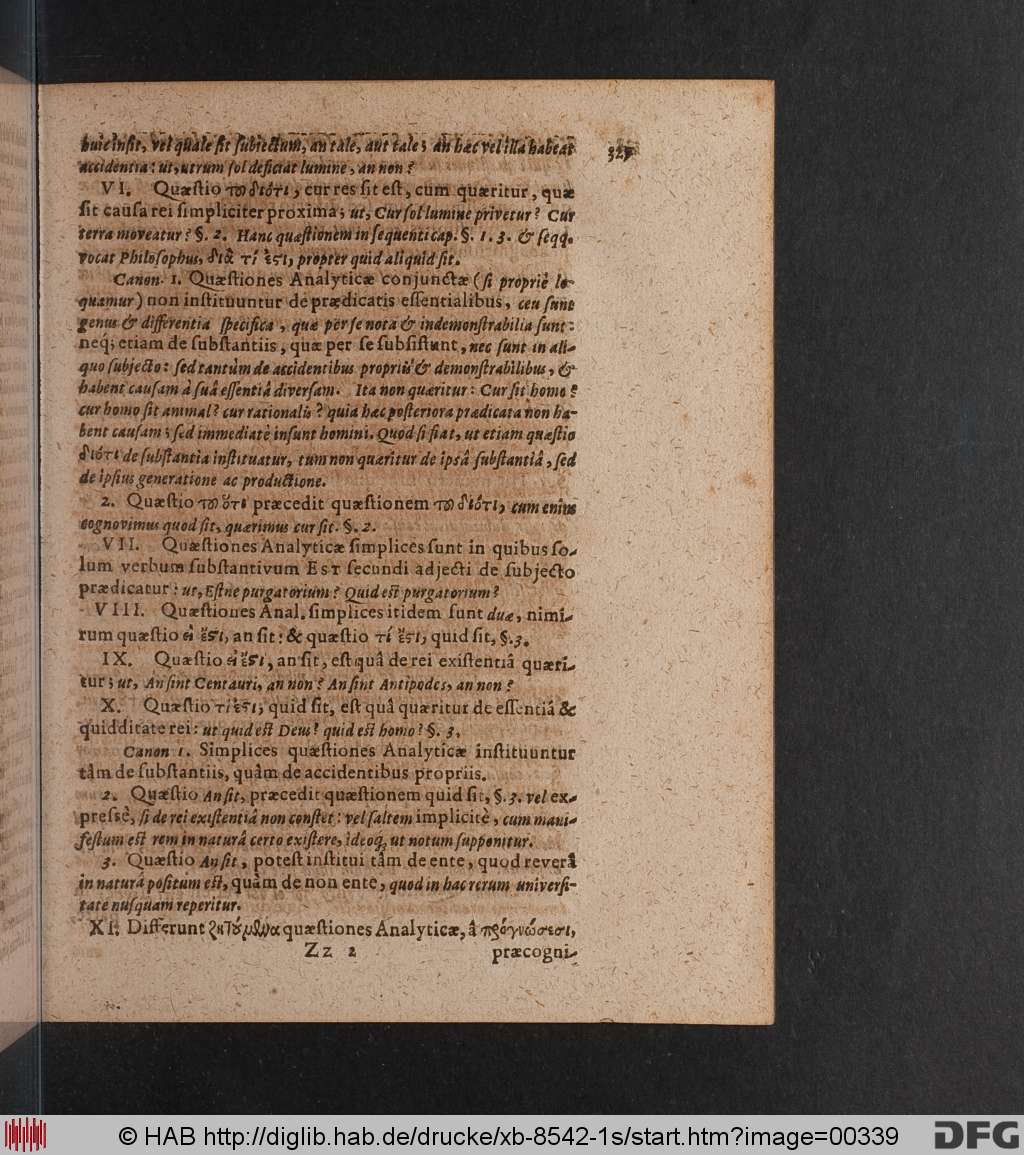 huic insit, vel quale sit subiectum, an tale, aut tale; an hæc vel illa habeat
accidentia: ut, utrum sol deficiat lumine, an non?
VI. Quæstio τȣ διότι, cur res sit est, cum quæritur, quæ
sit causa rei simpliciter proxima; ut, Cur sol lumine privetur? Cur
terra moveatur? §. 2. Hanc quæstionem in sequenti cap. §. 1. 3. & seqq.
vocat Philosophus, διὰ τί ἐστι, propter quid aliquid sit.
Canon. 1. Quæstiones Analyticæ conjunctæ (si propriè lo-
quamur) non instituuntur de prædicatis essentialibus, ceu sunt
genus & differentia specifica, quæ per se nota & indemonstrabilia sunt:
neq; etiam de substantiis, quæ per se subsistunt, nec sunt in ali-
quo subjecto: sed tantùm de accidentibus propriis & demonstrabilibus, &
habent causam à suâ essentiâ diversam. Ita non quæritur: Cur sit homo?
cur homo sit animal? cur rationalis? quia hæc posteriora prædicata non ha-
bent causam; sed immediatè insunt homini. Quod si fiat, ut etiam quæstio
διότι de substantia instituatur, tum non quæritur de ipsâ substantiâ, sed
de ipsius generatione ac productione.
2. Quæstio τȣ ὅτι præcedit quæstionem τȣ διότι, cum enim
cognovimus quod sit, quærimus cur sit. §. 2.
VII. Quæstiones Analyticæ simplices sunt in quibus so-
lum verbum substantivum EST secundi adjecti de subjecto
prædicatur: ut, Estne purgatorium? Quid est purgatorium?
VIII. Quæstiones Anal. simplices itidem sunt duæ, nimi-
rum quæstio εἰ ἔστι, an sit: & quæstio τί ἔστι, quid sit, §. 3.
IX. Quæstio εἰ ἔστι, an sit, est quâ de rei existentiâ quæri-
tur; ut, An sint Centauri, an non? An sint Antipodes, an non?
X. Quæstio τί ἐστι, quid sit, est quâ quæritur de essentiâ &
quidditate rei: ut quid est Deus? quid est homo? §. 3.
Canon 1. Simplices quæstiones Analyticæ instituuntur
tàm de substantiis, quàm de accidentibus propriis.
2. Quæstio An sit, præcedit quæstionem quid sit, §. 3. vel ex-
pressè, si de rei existentiâ non constet: vel saltem implicitè, cum mani-
festum est rem in naturâ certo existere, ideoq; ut notum supponitur.
3. Quæstio An sit, potest institui tàm de ente, quod reverâ
in naturâ positum est, quàm de non ente, quod in hac rerum universi-
tate nusquam reperitur.
XI. Differunt ζητούμενα quæstiones Analyticæ, â προγνώσεσι,
Zz 2 præcogni-
© HAB http://diglib.hab.de/drucke/xb-8542-1s/start.htm?image=00339 DFG